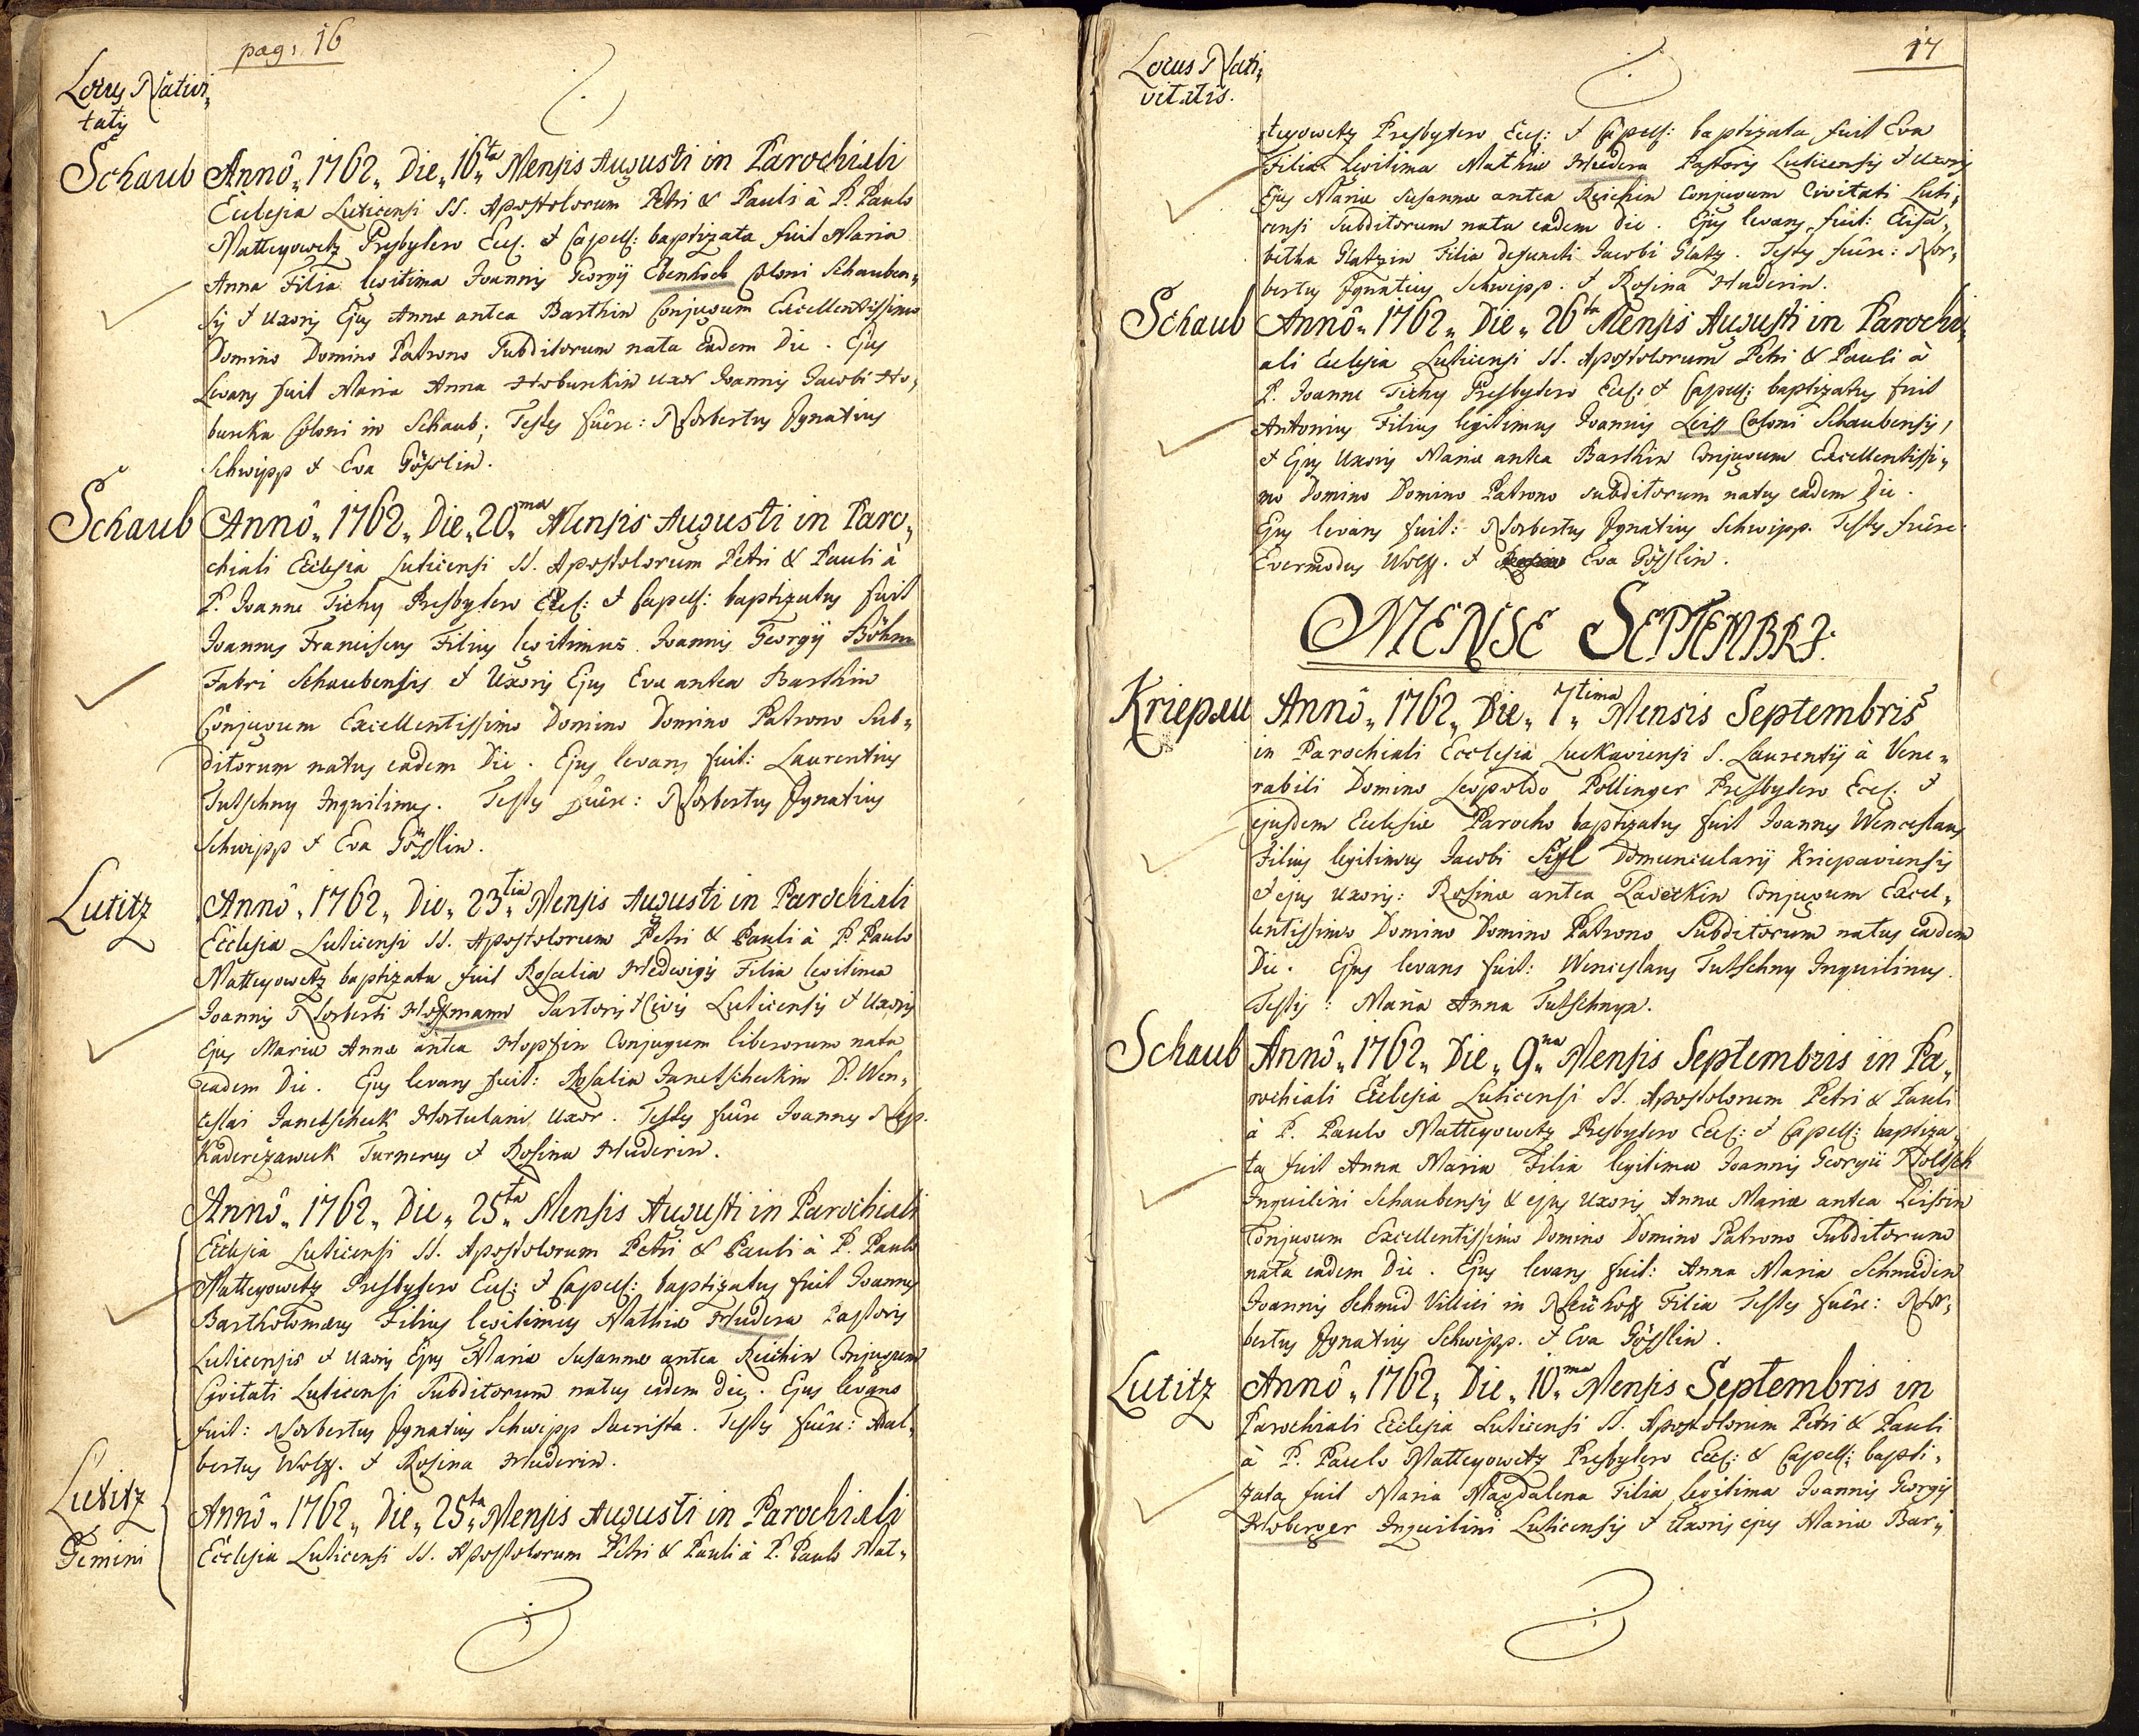 pag: 16
Locus Nativi„
tatis
Schaub
Annô „ 1762 „ Die „ 16ta „ Mensis Augusti in Parochiali
Ecclesia Luticensi SS. Apostolorum Petri & Pauli à P. Paulo
Matteyowetz Presbytero Eccl. & Capell: baptizata fuit Maria
Anna Filia legitima Joannis Georgij Ebenhoch Coloni Schauben„
sis & Uxoris Ejus Annæ antea Barthin Conjugum Excellentissimo
Domino Domino Patrono Subditorum nata eadem Die. Ejus
Levans fuit Maria Anna Hoburekin uxor Joannis Jacobi Ho„
bureka Coloni in Schaub; Testes fuêre: Norbertus Ignatius
Schwipp & Eva Gösslin.
Schaub
Annô „ 1762 „ Die „ 20ma „ Mensis Augusti in Paro„
chiali Ecclesia Luticensi SS. Apostolorum Petri & Pauli à
P. Joanne Tichy Presbytero Eccl: & Capell: baptizatus fuit
Joannes Franciscus Filius legitimus Joannis Georgij Böhm
Fabri Schaubensis & Uxoris Ejus Eva antea Barthin
Conjugum Excellentissimo Domino Domino Patrono Sub„
ditorum natus eadem Die. Ejus levans fuit: Laurentius
Tutschny Inquilinus. Testes fuêre: Norbertus Ignatius
Schwipp & Eva Gösslin.
Lutitz
Annô „ 1762 „ Die „ 23tia „ Mensis Augusti in Parochiali
Ecclesia Luticensi SS. Apostolorum Petri & Pauli à P. Paulo
Matteyowetz baptizata fuit Rosalia Hedwigis Filia legitima
Joannis Norberti Hoffmann Sartoris & Civis Luticensis & Uxoris
Ejus Mariæ Annæ antea Hopfin Conjugum liberorum nata
eadem Die. Ejus levans fuit: Rosalia Janetschekin D. Wen„
ceslai Janetscheck Hortulani Uxor. Testes fuêre Joannes Nep.
Kaderežaweck Turnerus & Rosina Huderin.
Annô „ 1762 „ Die „ 25ta „ Mensis Augusti in Parochiali
Ecclesia Luticensi SS. Apostolorum Petri & Pauli à P. Paulo
Matteyowetz Presbytero Eccl: & Capell: baptizatus fuit Joannes
Bartholomæus Filius legitimus Mathiæ Hudera Pastoris
Luticensis & uxoris Ejus Mariæ Susannæ antea Reichin Conjugum
Civitati Luticensi Subditorum natus eadem die. Ejus levans
fuit: Norbertus Ignatius Schwipp Sacrista. Testes fuêre: Adal„
bertus Wolff. & Rosina Huderin.
Lutitz
Gemini
Annô „ 1762 „ Die „ 25ta „ Mensis Augusti in Parochiali
Ecclesia Luticensi SS. Apostolorum Petri & Pauli à P. Paulo Mat„
17
Locus Nati„
vitatis.
teyowetz Presbytero Eccl: & Capell: baptizata fuit Eva
Filia Legitima Mathiæ Hudera Pastoris Luticensis & uxoris
Ejus Mariæ Susannæ antea Reichin Conjugum Civitati Luti„
censi Subditorum nata eadem die. Ejus levans fuit: Elisa„
betha Glatzin Filia defuncti Jacobi Glatz. Testes fuêre: Nor„
bertus Ignatius Schwipp. & Rosina Huderin.
Schaub
Annô „ 1762 „ Die „ 26ta Mensis Augusti in Parochi„
ali Ecclesia Luticensi SS. Apostolorum Petri & Pauli à
P. Joanne Tichy Presbytero Eccl: & Capell: baptizatus fuit
Antonius Filius legitimus Joannis Leiss Coloni Schaubensis,
& Ejus Uxoris Mariæ antea Barthin Conjugum Excellentissi„
mo Domino Domino Patrono subditorum natus eadem Die.
Ejus levans fuit: Norbertus Ignatius Schwipp. Testes fuêre:
Evermodus Wolff. & Eva Gösslin.
MENSE SEPTEMBRI:
Kriepau
Annô „ 1762 „ Die „ 7tima „ Mensis Septembris
in Parochiali Ecclesia Luckaviensi S. Laurentij à Vene„
rabili Domino Leopoldo Pollinger Presbytero Eccl. &
ejusdem Ecclesiæ Parocho baptizatus fuit Joannes Wenceslaus
Filius legitimus Jacobi Sigl Domuncularij Kriepaviensis
& ejus uxoris: Rosinæ antea Pavetkin Conjugum Excel„
lentissimo Domino Domino Patrono Subditorum natus eadem
Die. Ejus levans fuit: Wenceslaus Tutschny Inquilinus.
Testis: Maria Anna Tutschnyn.
Schaub
Annô „ 1762 „ Die „ 9na „ Mensis Septembris in Pa„
rochiali Ecclesia Luticensi SS. Apostolorum Petri & Pauli
à P. Paulo Matteyowetz Presbytero Eccl: & Capell: baptiza„
ta fuit Anna Maria Filia legitima Joannis Georgii Holdsch
Inquilini Schaubensis & ejus uxoris Annæ Mariæ antea Leissin
Conjugum Excellentissimo Domino Domino Patrono Subditorum
nata eadem Die. Ejus levans fuit: Anna Maria Schmidin
Joannis Schmid Villici in Neühoff Filia Testes fuêre: Nor„
bertus Ignatius Schwipp. & Eva Gösslin.
Lutitz
Annô „ 1762 „ Die „ 10ma „ Mensis Septembris in
Parochiali Ecclesia Luticensi SS. Apostolorum Petri & Pauli
à P. Paulo Matteyowetz Presbytero Eccl: & Capell: bapti„
zata fuit Maria Magdalena Filia legitima Joannis Georgij
Hoberger Inquilini Luticensis & Uxoris ejus Mariæ Bar„